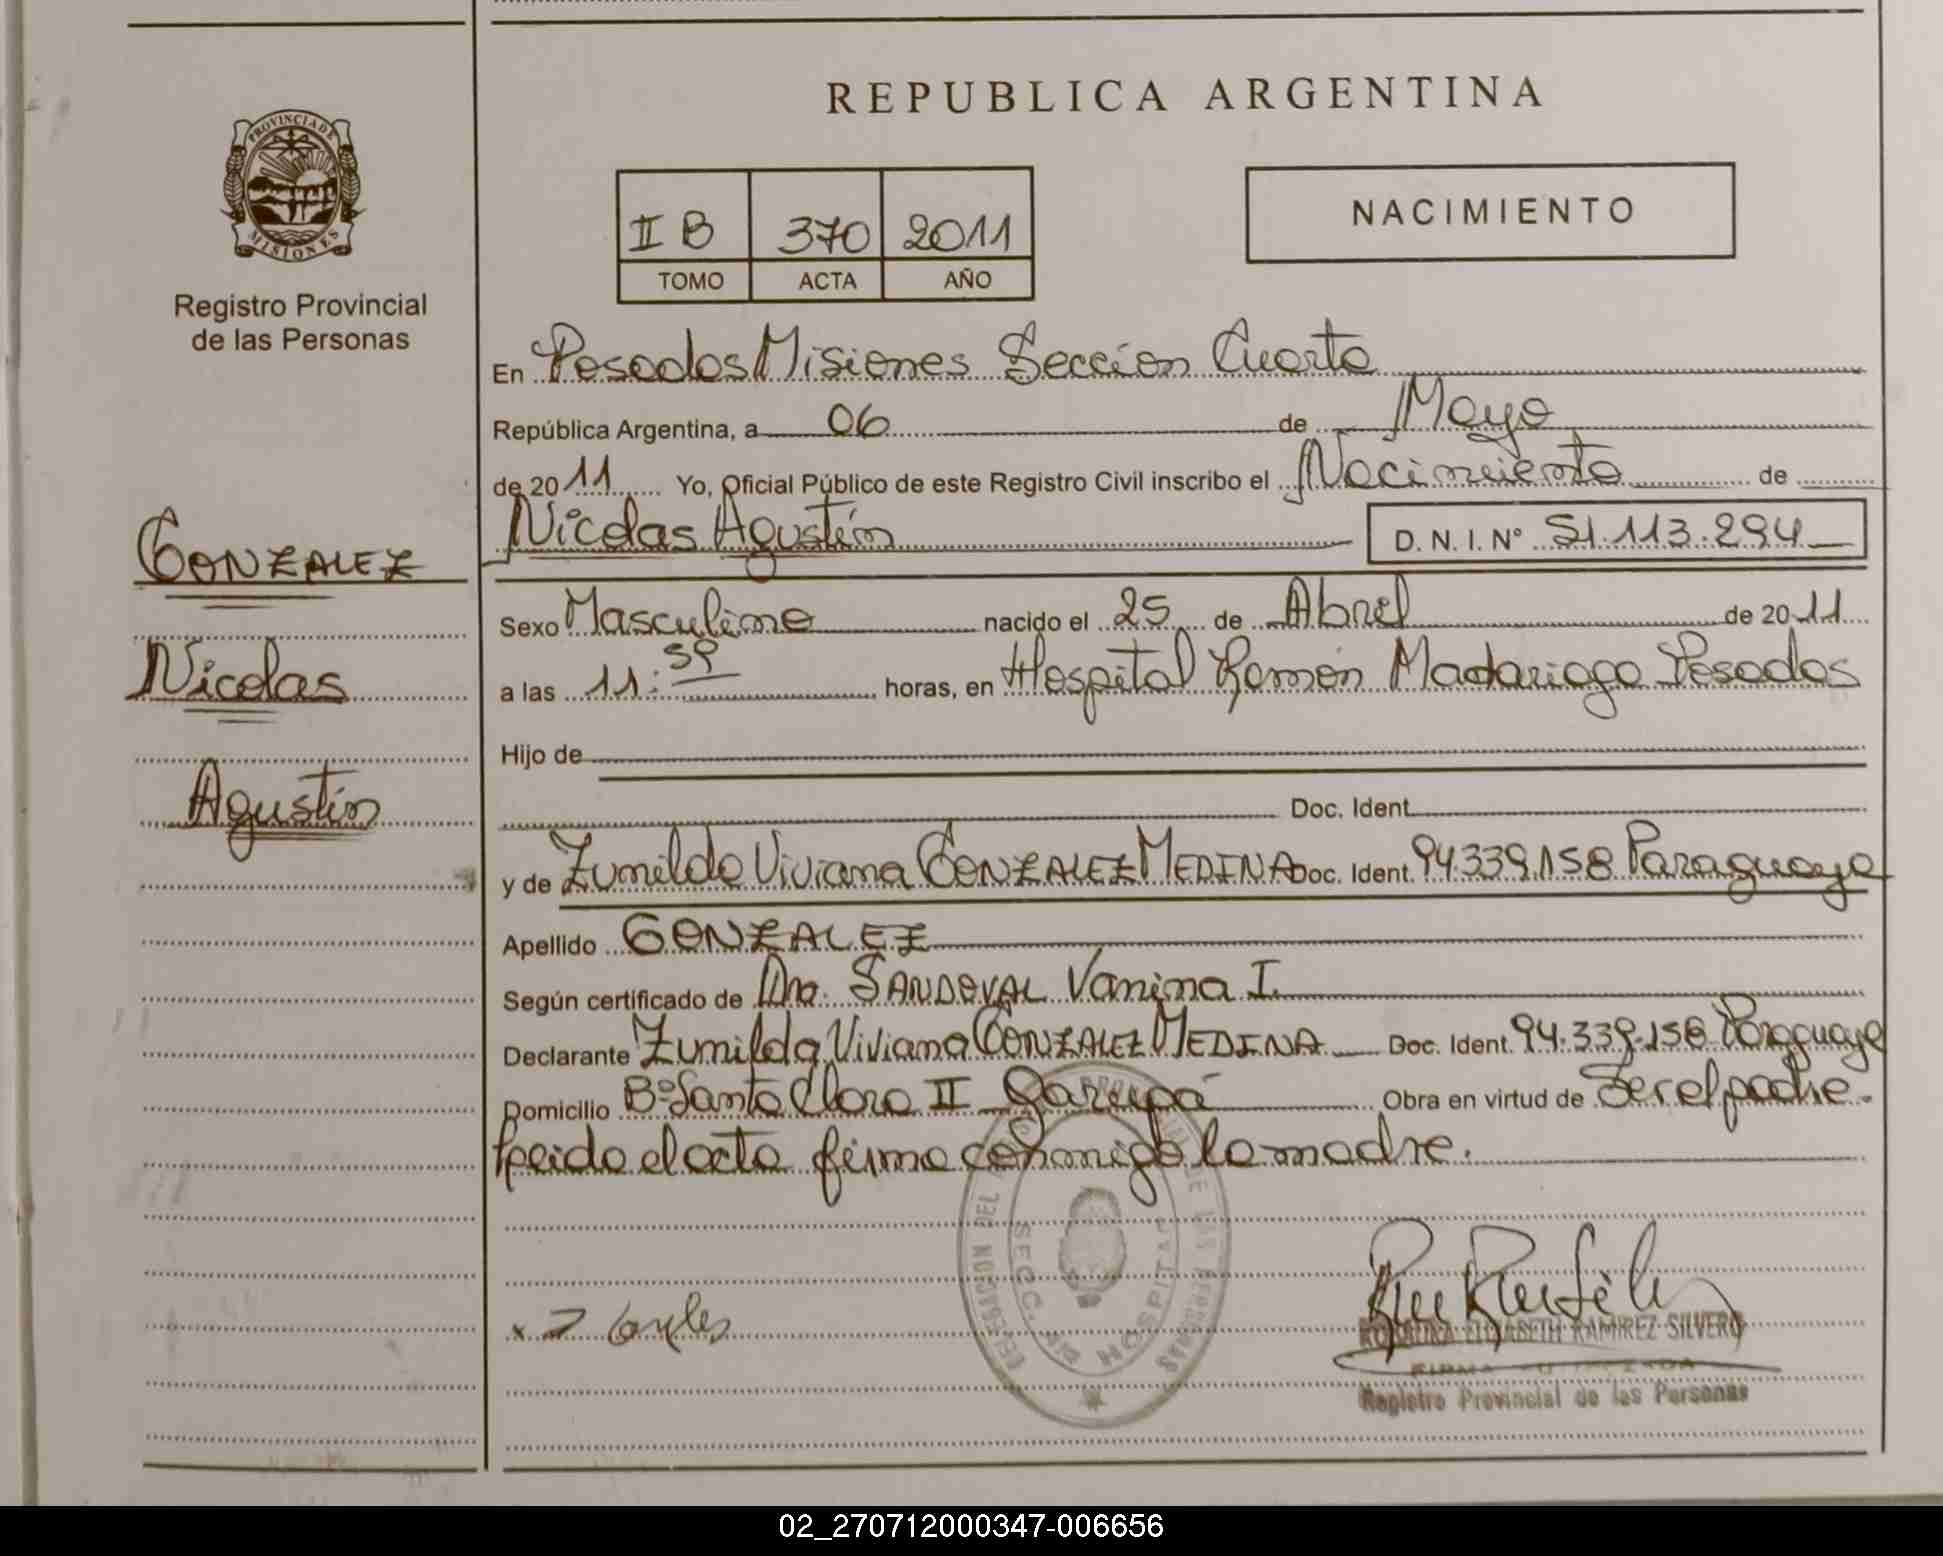 REPUBLICA ARGENTINA
PROVINCIA DE
MISIONES
Registro Provincial
de las Personas
II B 370 2011
TOMO ACTA AÑO
NACIMIENTO
GONZALEZ
Nicolas
Agustín
En Posadas Misiones Sección Cuarta
República Argentina, a 06 de Mayo
de 2011 Yo, Oficial Público de este Registro Civil inscribo el Nacimiento de
Nicolas Agustín D. N. I. N° 51.113.294
Sexo Masculino nacido el 25 de Abril de 2011
a las 11: horas, en Hospital Ramón Madariaga Posadas
Hijo de
Doc. Ident.
y de Zunilda Viviana GONZALEZ MEDINA Doc. Ident. 94.339.158 Paraguaya
Apellido GONZALEZ
Según certificado de Dra. SANDOVAL Vanina I.
Declarante Zunilda Viviana GONZALEZ MEDINA Doc. Ident. 94.339.158 Paraguaya
Domicilio B° Santa Clara II Garupá Obra en virtud de Ser el padre.
Leida el acta firma conmigo la madre.
SECC. HOSPITAL
ELIZABETH RAMIREZ SILVERO
Registro Provincial de las Personas
02_270712000347-006656